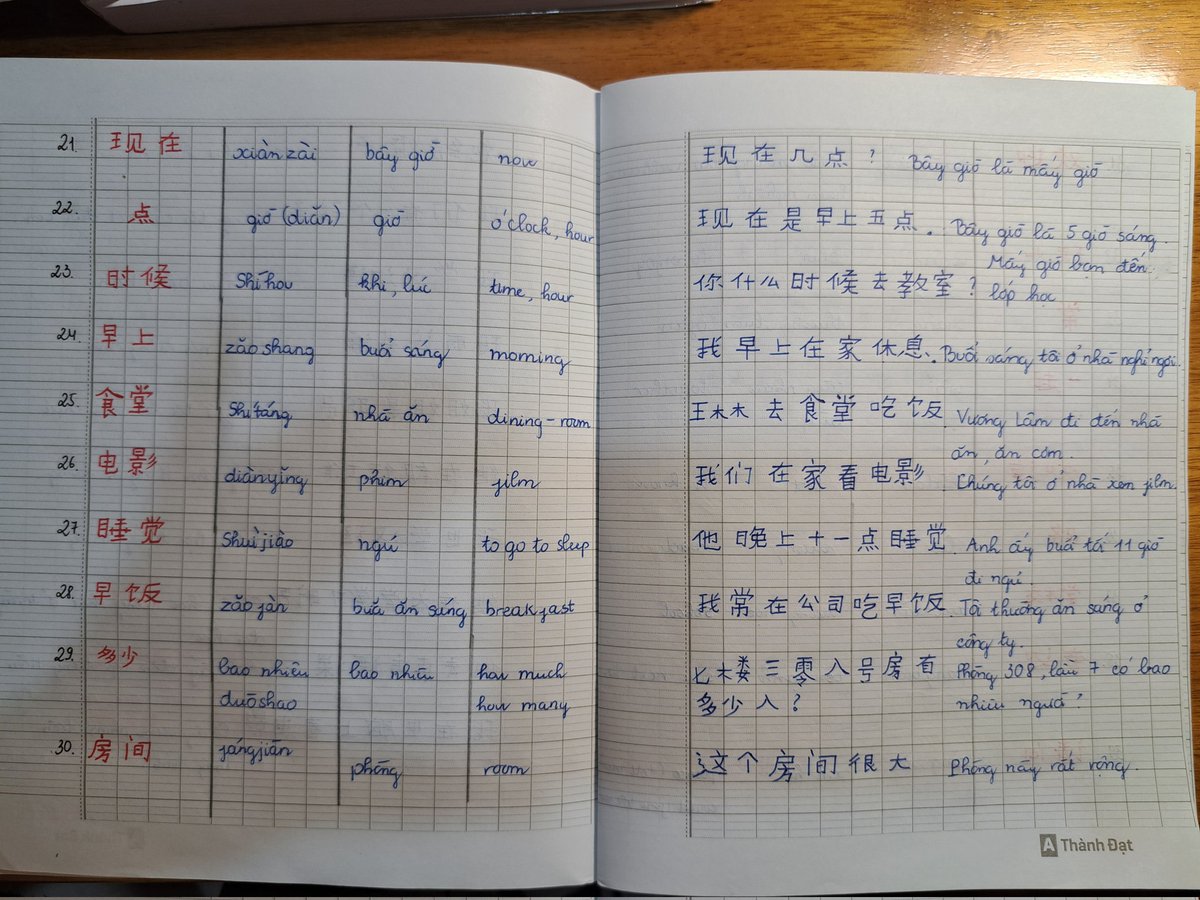 21. 现在 xiàn zài bây giờ now
22. 点 giờ (diǎn) giờ o'clock, hour
23. 时候 Shíhou khi, lúc time, hour
24. 早上 zǎo shang buổi sáng morning
25. 食堂 Shítáng nhà ăn dining-room
26. 电影 diànyǐng phim film
27. 睡觉 Shuì jiào ngủ to go to sleep
28. 早饭 zǎo fàn bữa ăn sáng breakfast
29. 多少 bao nhiêu bao nhiêu how much
duōshao how many
30. 房间 fángjiān phòng room
现在几点? Bây giờ là mấy giờ
现在是早上五点. Bây giờ là 5 giờ sáng.
你什么时候去教室? Mấy giờ bạn đến
lớp học
我早上在家休息. Buổi sáng tôi ở nhà nghỉ ngơi.
王林去食堂吃饭. Vương Lâm đi đến nhà
ăn, ăn cơm.
我们在家看电影. Chúng tôi ở nhà xem film.
他晚上十一点睡觉. Anh ấy buổi tối 11 giờ
đi ngủ.
我常在公司吃早饭. Tôi thường ăn sáng ở
công ty.
七楼三零八号房有 Phòng 308, lầu 7 có bao
多少人? nhiêu người?
这个房间很大 Phòng này rất rộng.
A Thành Đạt